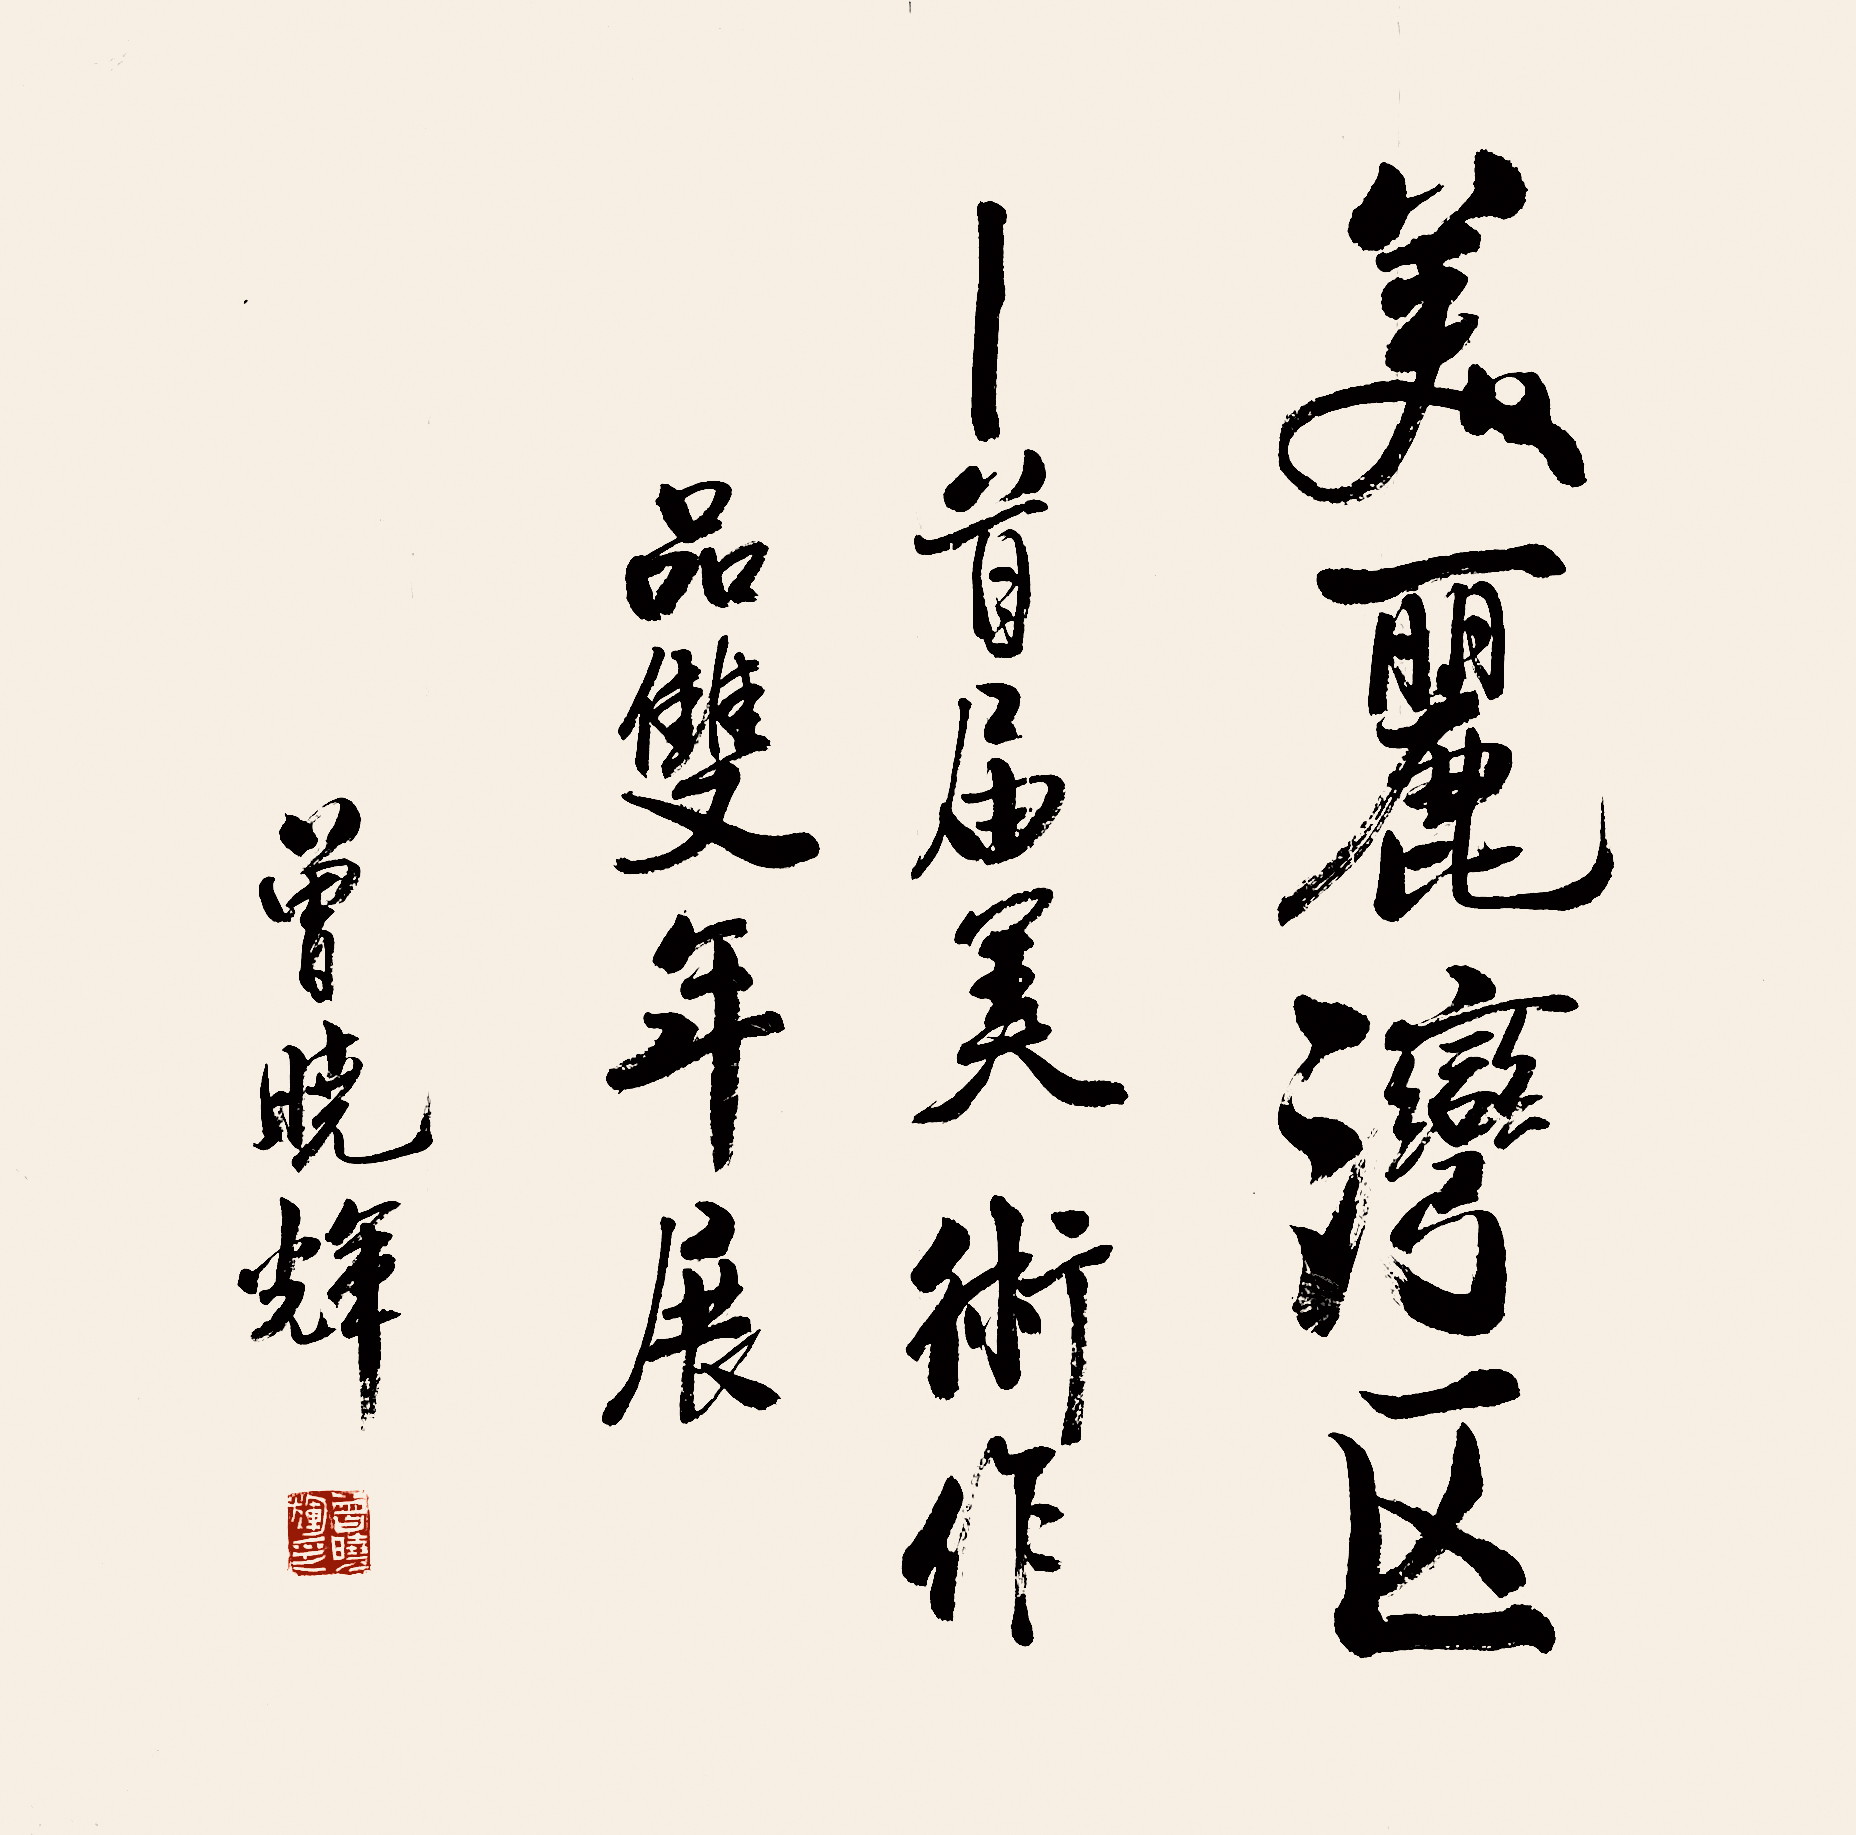 美麗灣区
—首届美術作
品雙年展
曾晓輝
曾曉輝印